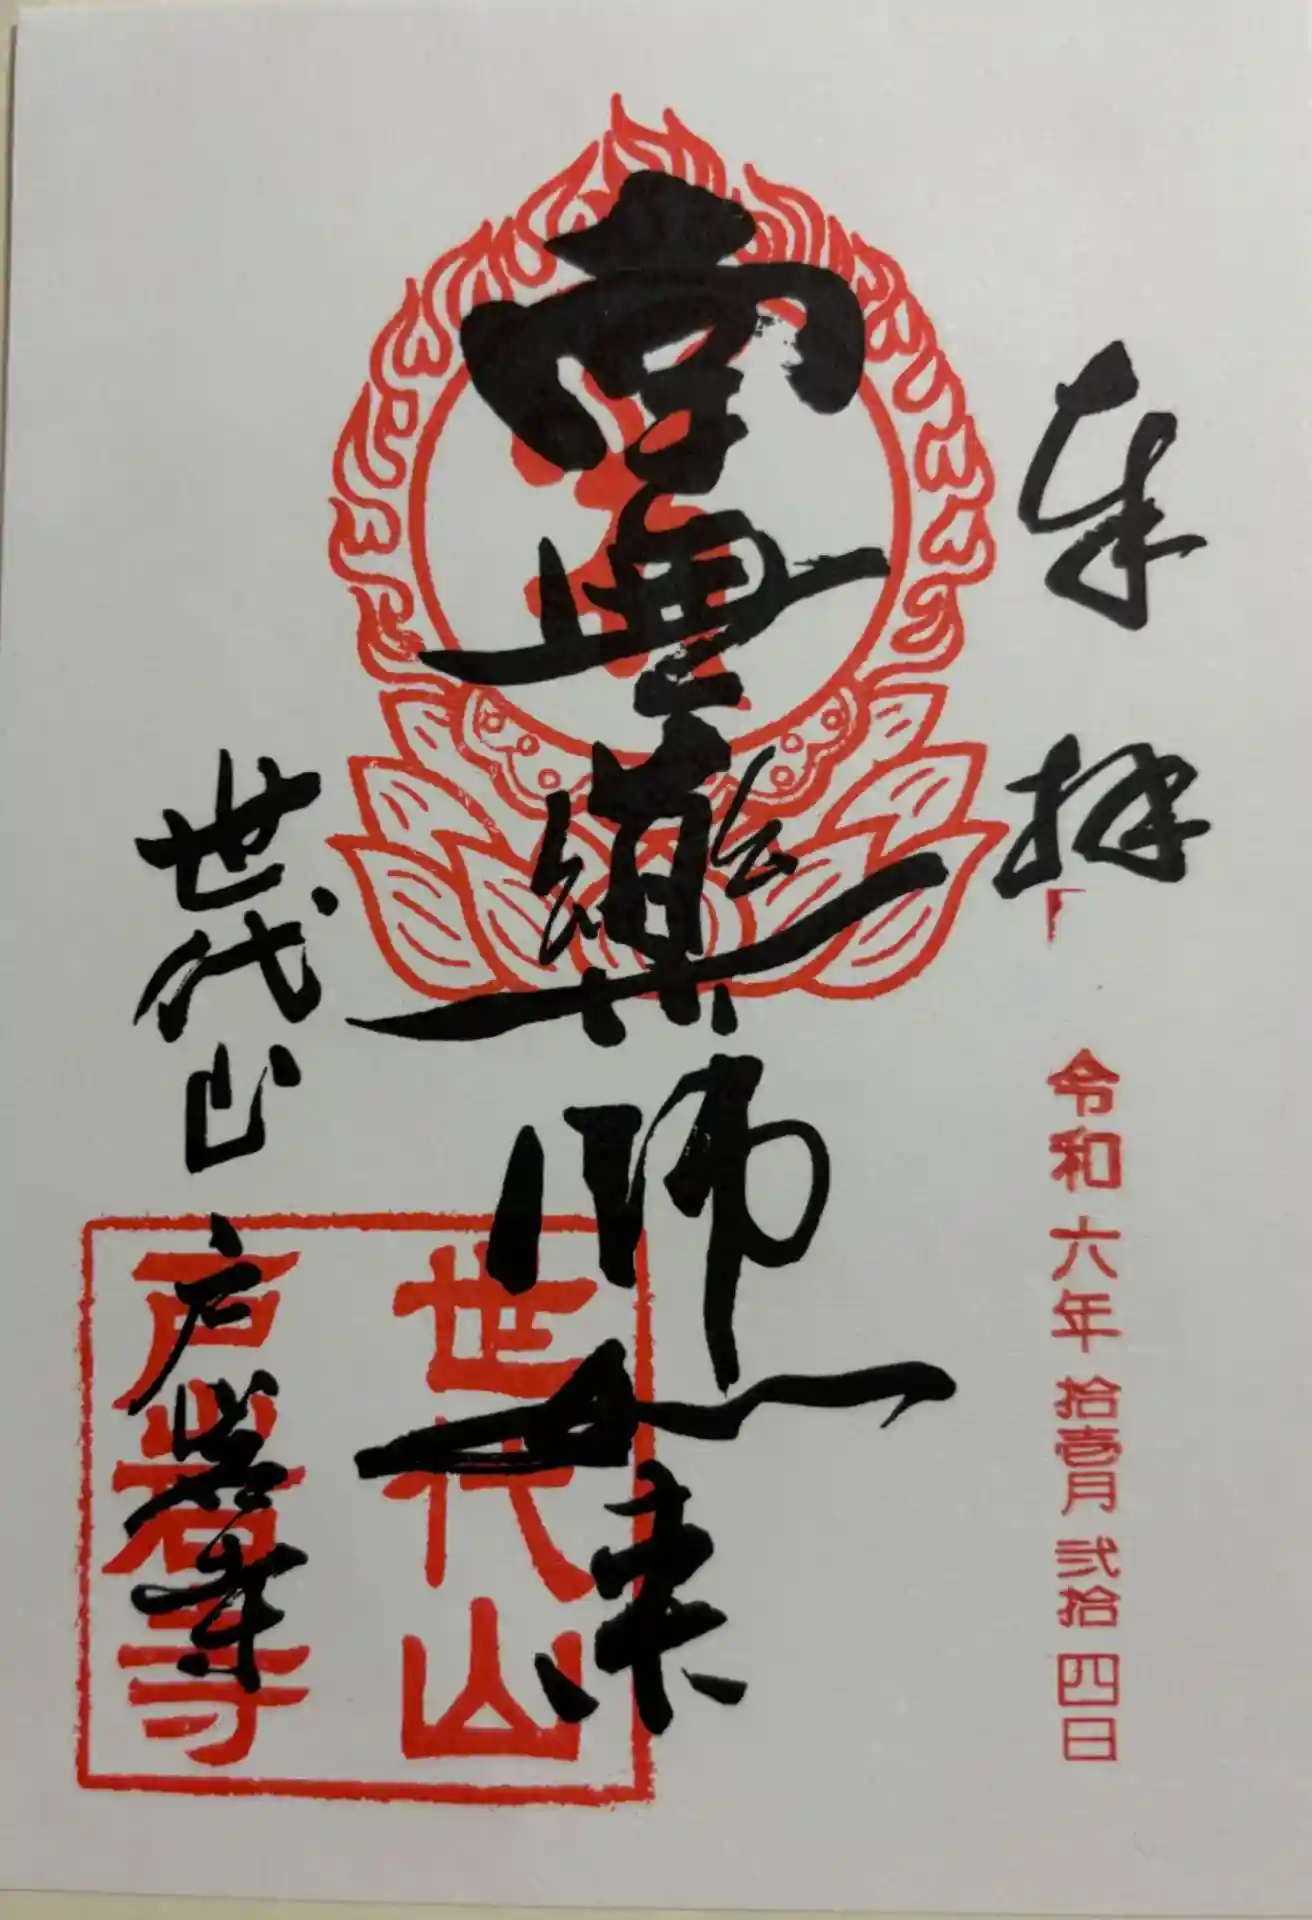 奉拝
令和六年拾壹月弐拾四日
薬師如来
世代山
戸岩寺
世代山
戸岩寺